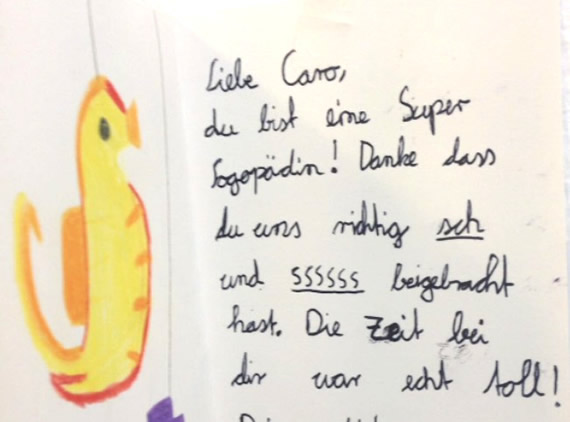 Liebe Caro,
du bist eine Super
Logopädin! Danke dass
du uns richtig sch
und ssssss beigebracht
hast. Die Zeit bei
dir war echt toll!